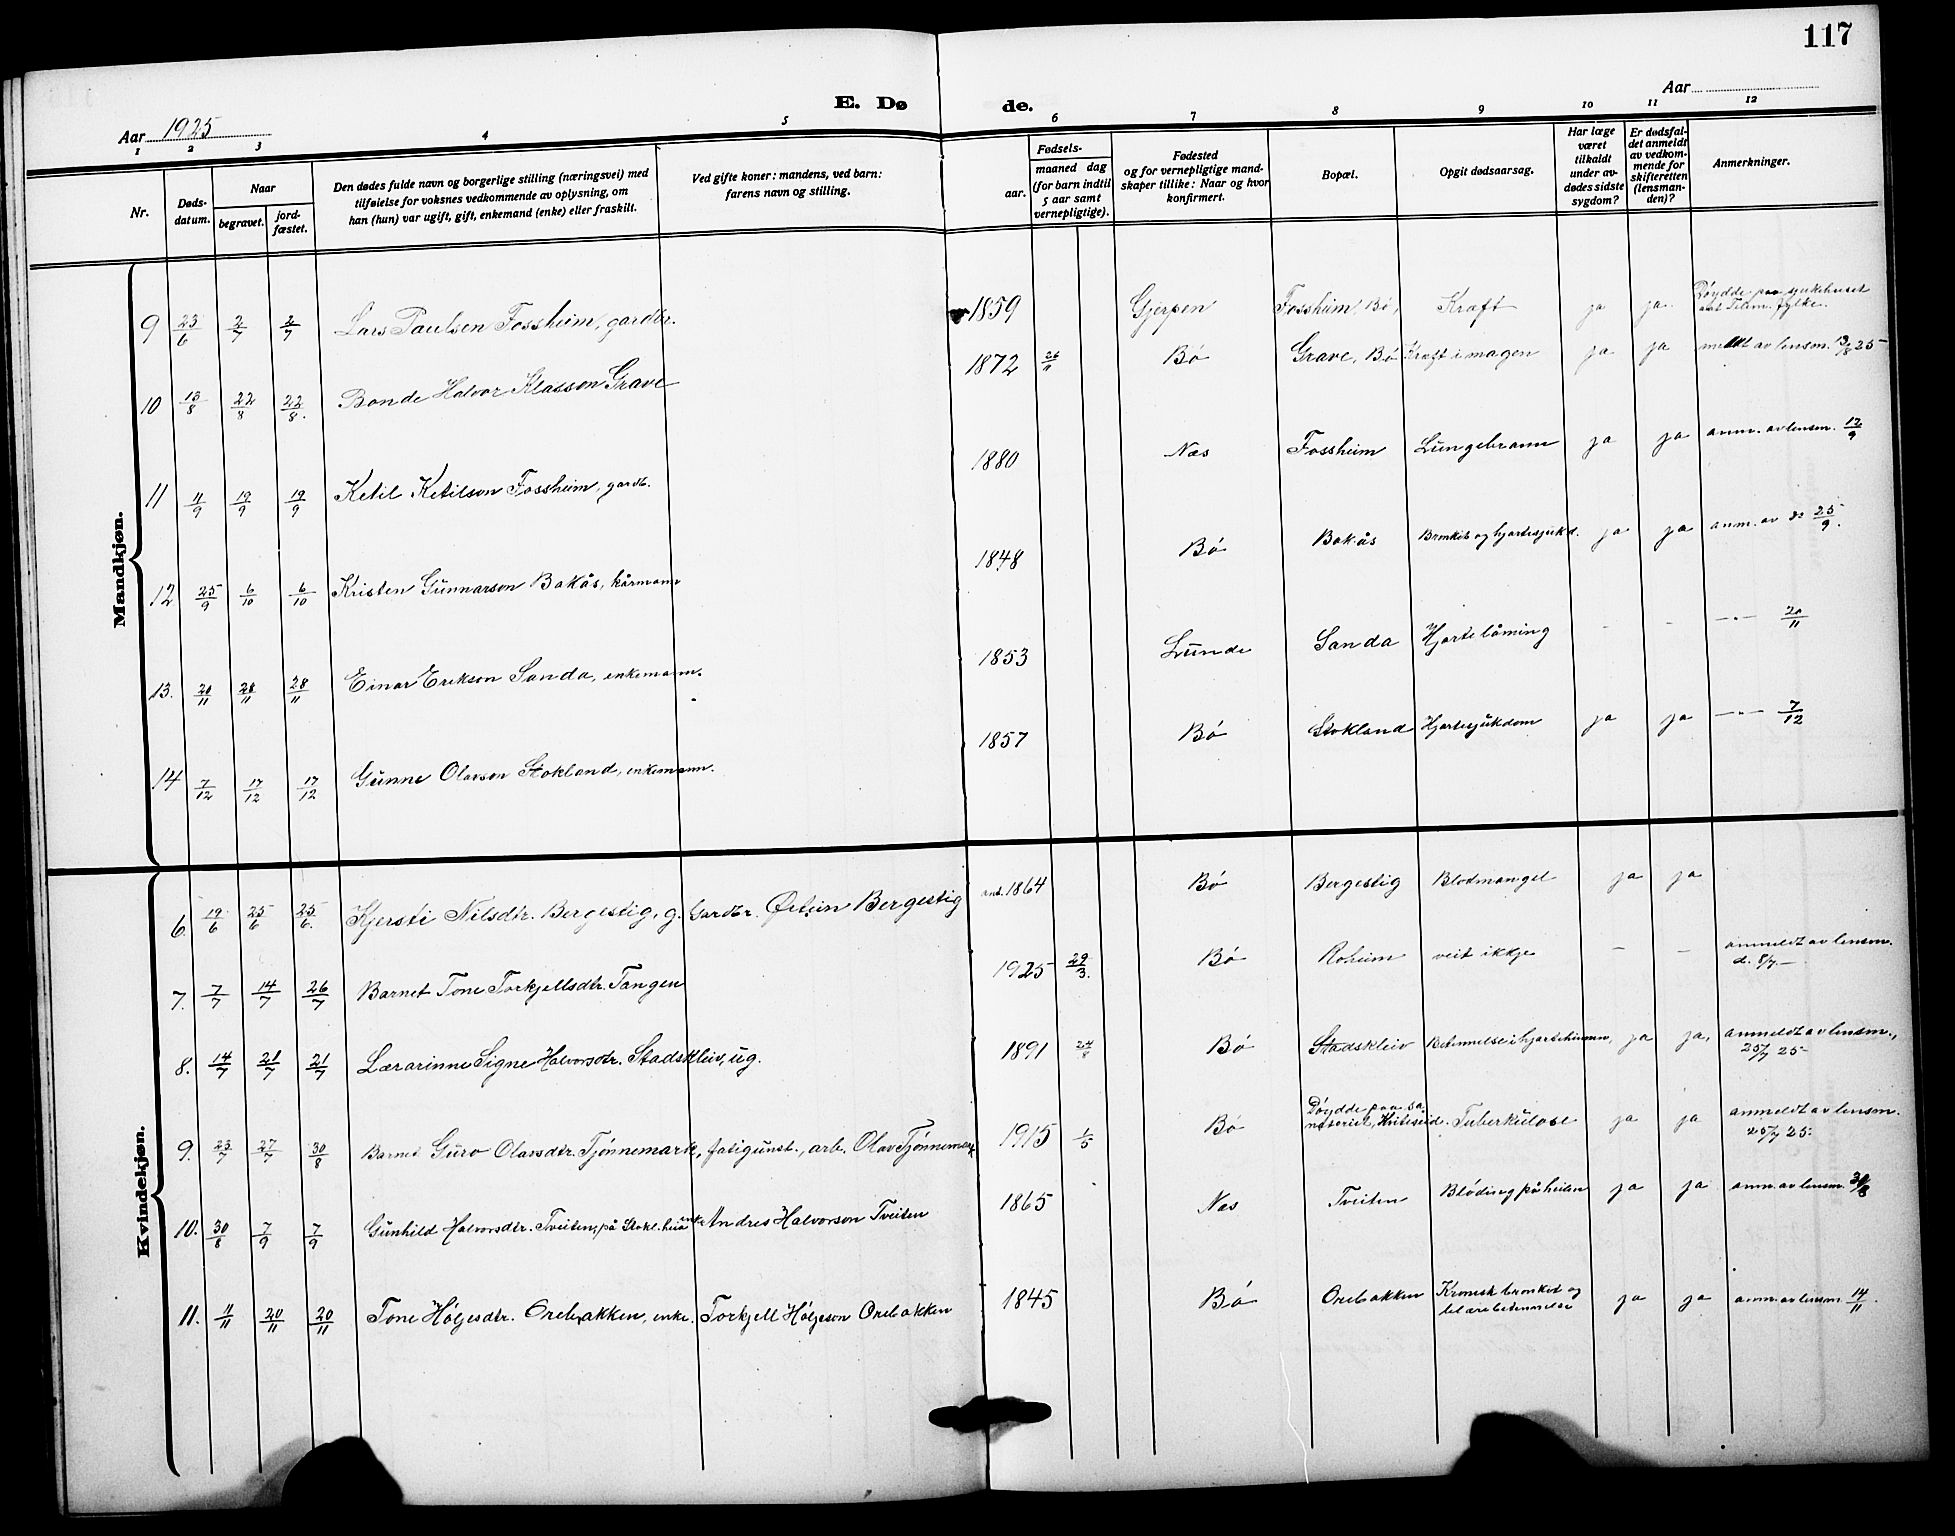 117
E. Dø de.
Aar 1925
Aar
1 2 3 4 5 6 7 8 9 10 11 12
Nr.
Døds-
datum.
Naar
begravet.
jord-
fæstet.
Den dødes fulde navn og borgerlige stilling (næringsvei) med
tilføielse for voksnes vedkommende av oplysning, om
han (hun) var ugift, gift, enkemand (enke) eller fraskilt.
Ved gifte koner: mandens, ved barn:
farens navn og stilling.
Fødsels-
aar.
maaned dag
(for barn indtil
5 aar samt
vernepligtige).
Fødested
og for vernepligtige mand-
skaper tillike: Naar og hvor
konfirmert.
Bopæl.
Opgit dødsaarsag.
Har læge
været
tilkaldt
under av-
dødes sidste
sygdom?
Er dødsfal-
det anmeldt
av vedkom-
mende for
skifteretten
(lensman-
den)?
Anmerkninger.
Mandkjøn.
9 23/6 2/7 2/7 Lars Paulsen Fossheim, gardbr. 1859 Gjerpen Fossheim, Bø, Kræft ja ja. Døydde paa sjukehuset Telem. fylke.
10 13/8 22/8 22/8. Bonde Halvor Klasson Grave 1872 26/11 Bø Grave, Bø Kræft i magen ja ja meldt av lensm. 13/8 25
11 11/9 19/9 19/9 Ketil Ketilson Fossheim, gardb. 1880 Nes Fossheim Lungebrann ja ja anm. av lensm. 12/9
12 25/9 6/10 6/10 Kristen Gunnarson Bakås, kårmann 1848 Bø Bakås Bronkit og hjartesjukd. ja ja anm. av do 25/9.
13. 20/11 28/11 28/11 Einar Erikson Sanda, enkemann. 1853 Lunde Sanda Hjartelåming - - —"— 20/11
14 7/12 17/12 17/12 Gunne Olavson Stokland, enkemann. 1857 Bø Stokland Hjartesjukdom ja ja —"— 7/12
Kvindekjøn.
6. 19/6 25/6 25/6. Kjersti Nilsdtr. Bergestig, g. Gardbr. Østein Bergestig 1864 Bø Bergestig Blodmangel ja ja
7. 7/7 14/7 26/7 Barnet Tone Torkjellsdtr. Tangen 1925 29/3. Bø Roheim veit ikkje - - anmeldt av lensm. d. 8/7 -
8. 14/7 21/7 21/7 Lærarinne Signe Halvorsdtr. Stadskleiv, ug. 1891 24/8 Bø Stadskleiv Betennelse i hjartehinnen, ja ja, anmeldt av lensm., 25/7 25
9. 23/7 27/7 30/8 Barnet Guro Olavsdtr. Tjønnemark, fatigunst., arb. Olav Tjønnemark 1915 1/5 Bø Døydde paa sanatoriet, Kviteseid. Tuberkulose ja ja anmeldt av lensm. 25/7 25.
10. 30/8 7/9 7/9 Gunhild Halvorsdtr. Tveiten, på Stokl.heia enke Andres Halvorson Tveiten 1865 Nes Tveiten Bløding på heilen ja ja anm. av lensm. 30/8
11. 11/11 20/11 20/11 Tone Høljesdtr. Orebakken, enke. Torkjell Høljeson Orebakken 1845 Bø Orebakken Kronisk bronkit og betennelse ja ja anm. av lensm. 14/11.